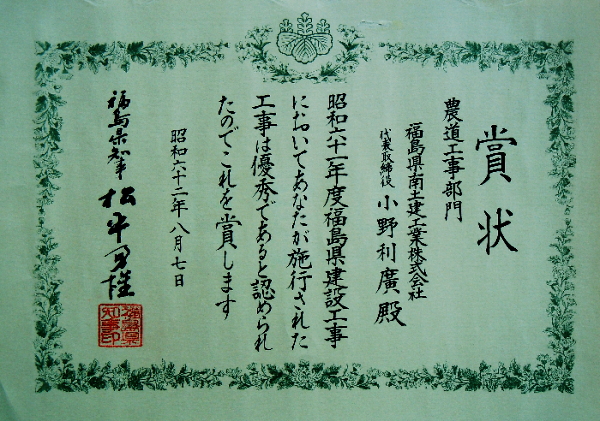 賞状
農道工事部門
福島県南土建工業株式会社
代表取締役 小野利廣殿
昭和六十一年度福島県建設工事
においてあなたが施行された
工事は優秀であると認められ
たのでこれを賞します
昭和六十二年八月七日
福島県知事 松平勇雄
福島県知事印